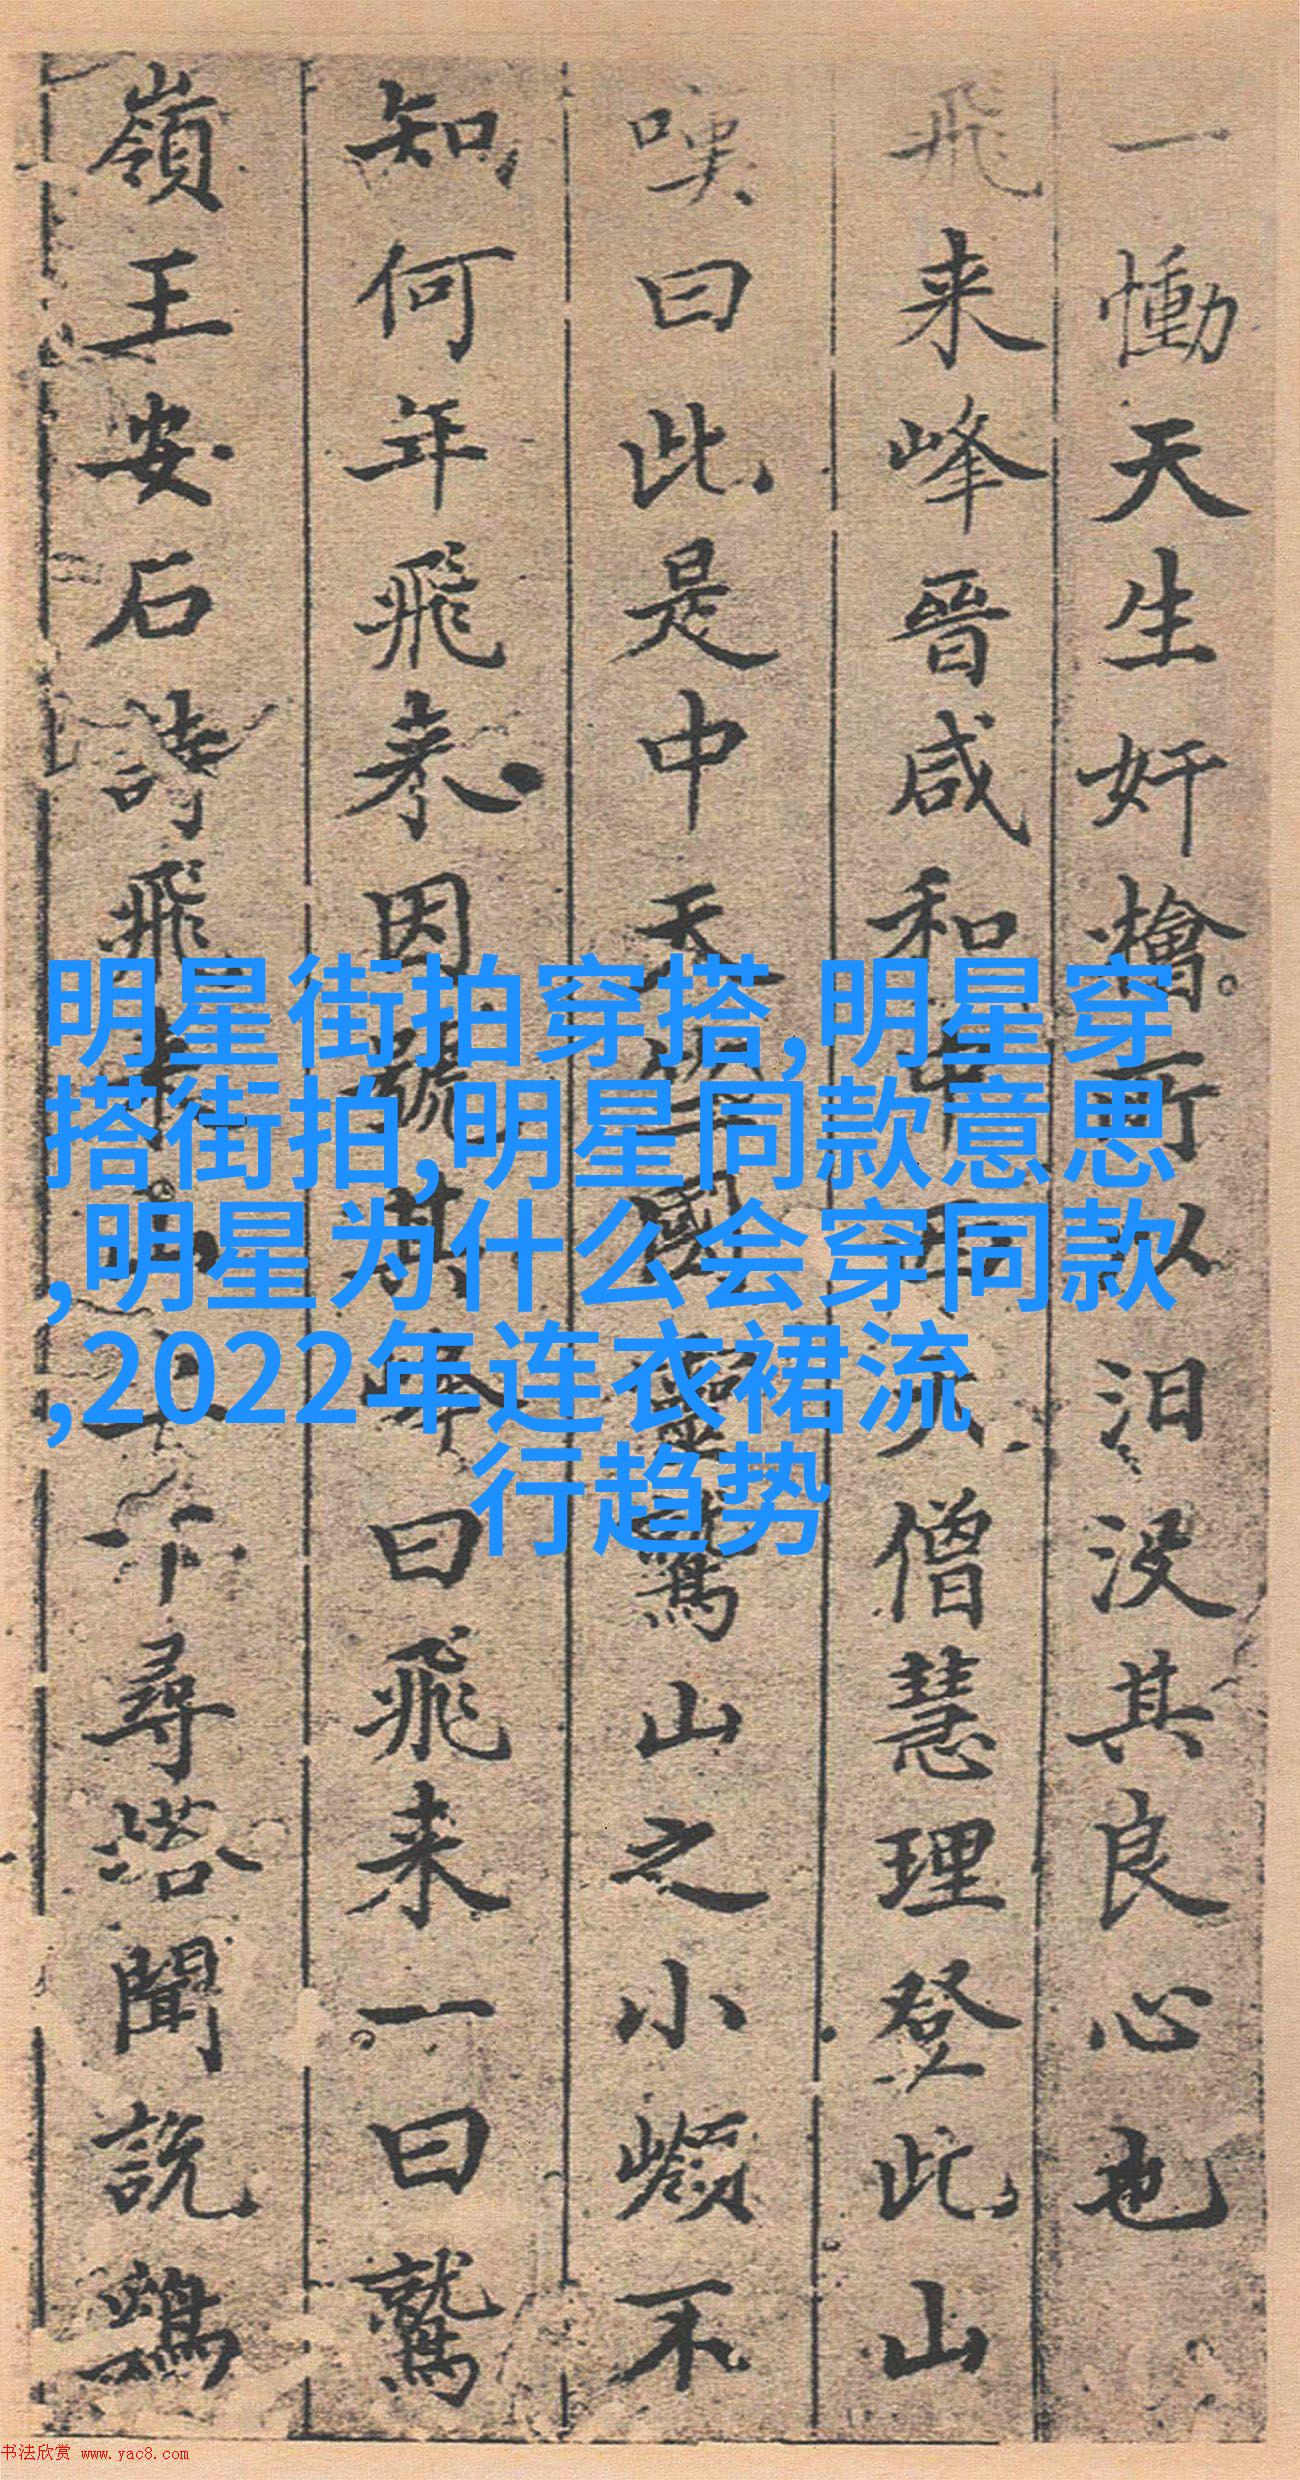 一慟天生奸檜所以汨没其良心也
飛来峰晉咸和中西天僧慧理登此山
嘆曰此是中天竺國靈鷲山之小嶺不
知何年飛来因號其峰曰飛来一曰鷲
嶺王安石詩飛来山上千尋塔聞說鷄
明星街拍穿搭,明星穿
搭街拍,明星同款意思
,明星为什么会穿同款
,2022年连衣裙流
行趋势
书法欣赏 www.yac8.com